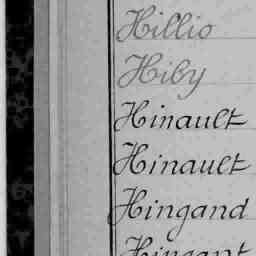 Hillio
Hiby
Hinault
Hinault
Hingand
Hingant